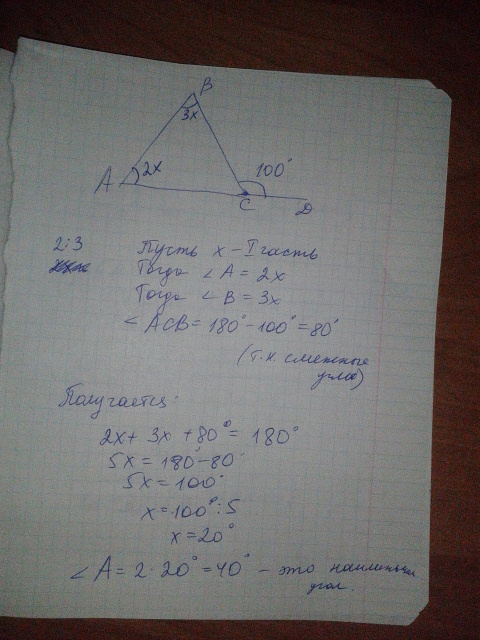 B
3x
A 2x
100°
C D
2:3 Пусть x - I часть
Тогда ∠A = 2x
Тогда ∠B = 3x
∠ACB = 180° - 100° = 80°
(т.к. смежные
углы)
Получается:
2x + 3x + 80° = 180°
5x = 180° - 80°
5x = 100°
x = 100° : 5
x = 20°
∠A = 2 · 20° = 40° - это наименьший
угол.